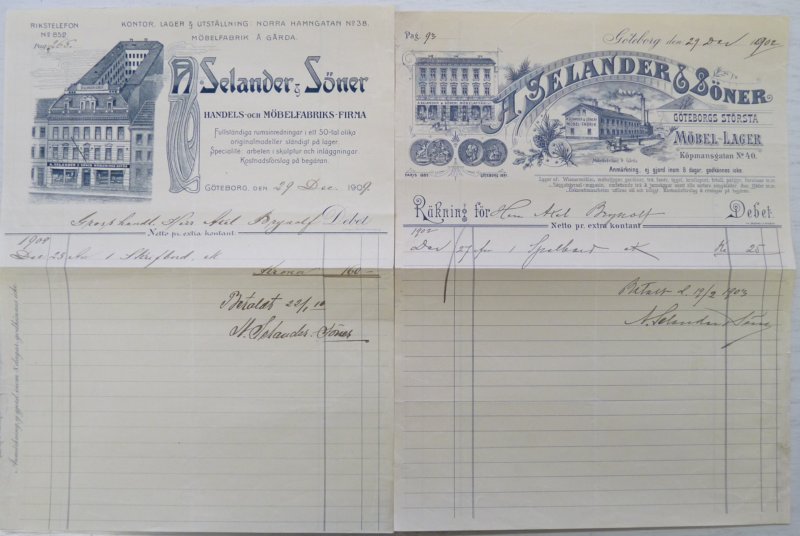 RIKSTELEFON
No 852.
Pag. 265.
KONTOR, LAGER & UTSTÄLLNING: NORRA HAMNGATAN No 38.
MÖBELFABRIK Å GÅRDA.
A. Selander & Söner
HANDELS- OCH MÖBELFABRIKS-FIRMA
Fullständiga rumsinredningar i ett 50-tal olika
originalmodeller ständigt på lager.
Specialité: arbeten i skulptur och inläggningar.
Kostnadsförslag på begäran.
GÖTEBORG, DEN 29 Dec. 1909
Grosshandl. Herr Axel Debet
Netto pr. extra kontant
Dec 23 1 Skrifbord, ek
Kronor 160 –
Betaldt 22/1 10
A. Selander & Söner
Pag. 93
Göteborg den 29 Dec 1902
A. SELANDER & SÖNER
GÖTEBORGS STÖRSTA
MÖBEL-LAGER
Köpmansgatan No 40.
Anmärkning, ej gjord inom 8 dagar, godkännes icke.
Räkning för Herr Axel Debet
Netto pr. extra kontant
1902
Dec 27 1 Spelbord ek Kr 25 –
Betalt d. 19/2 1903
A. Selander & Söner